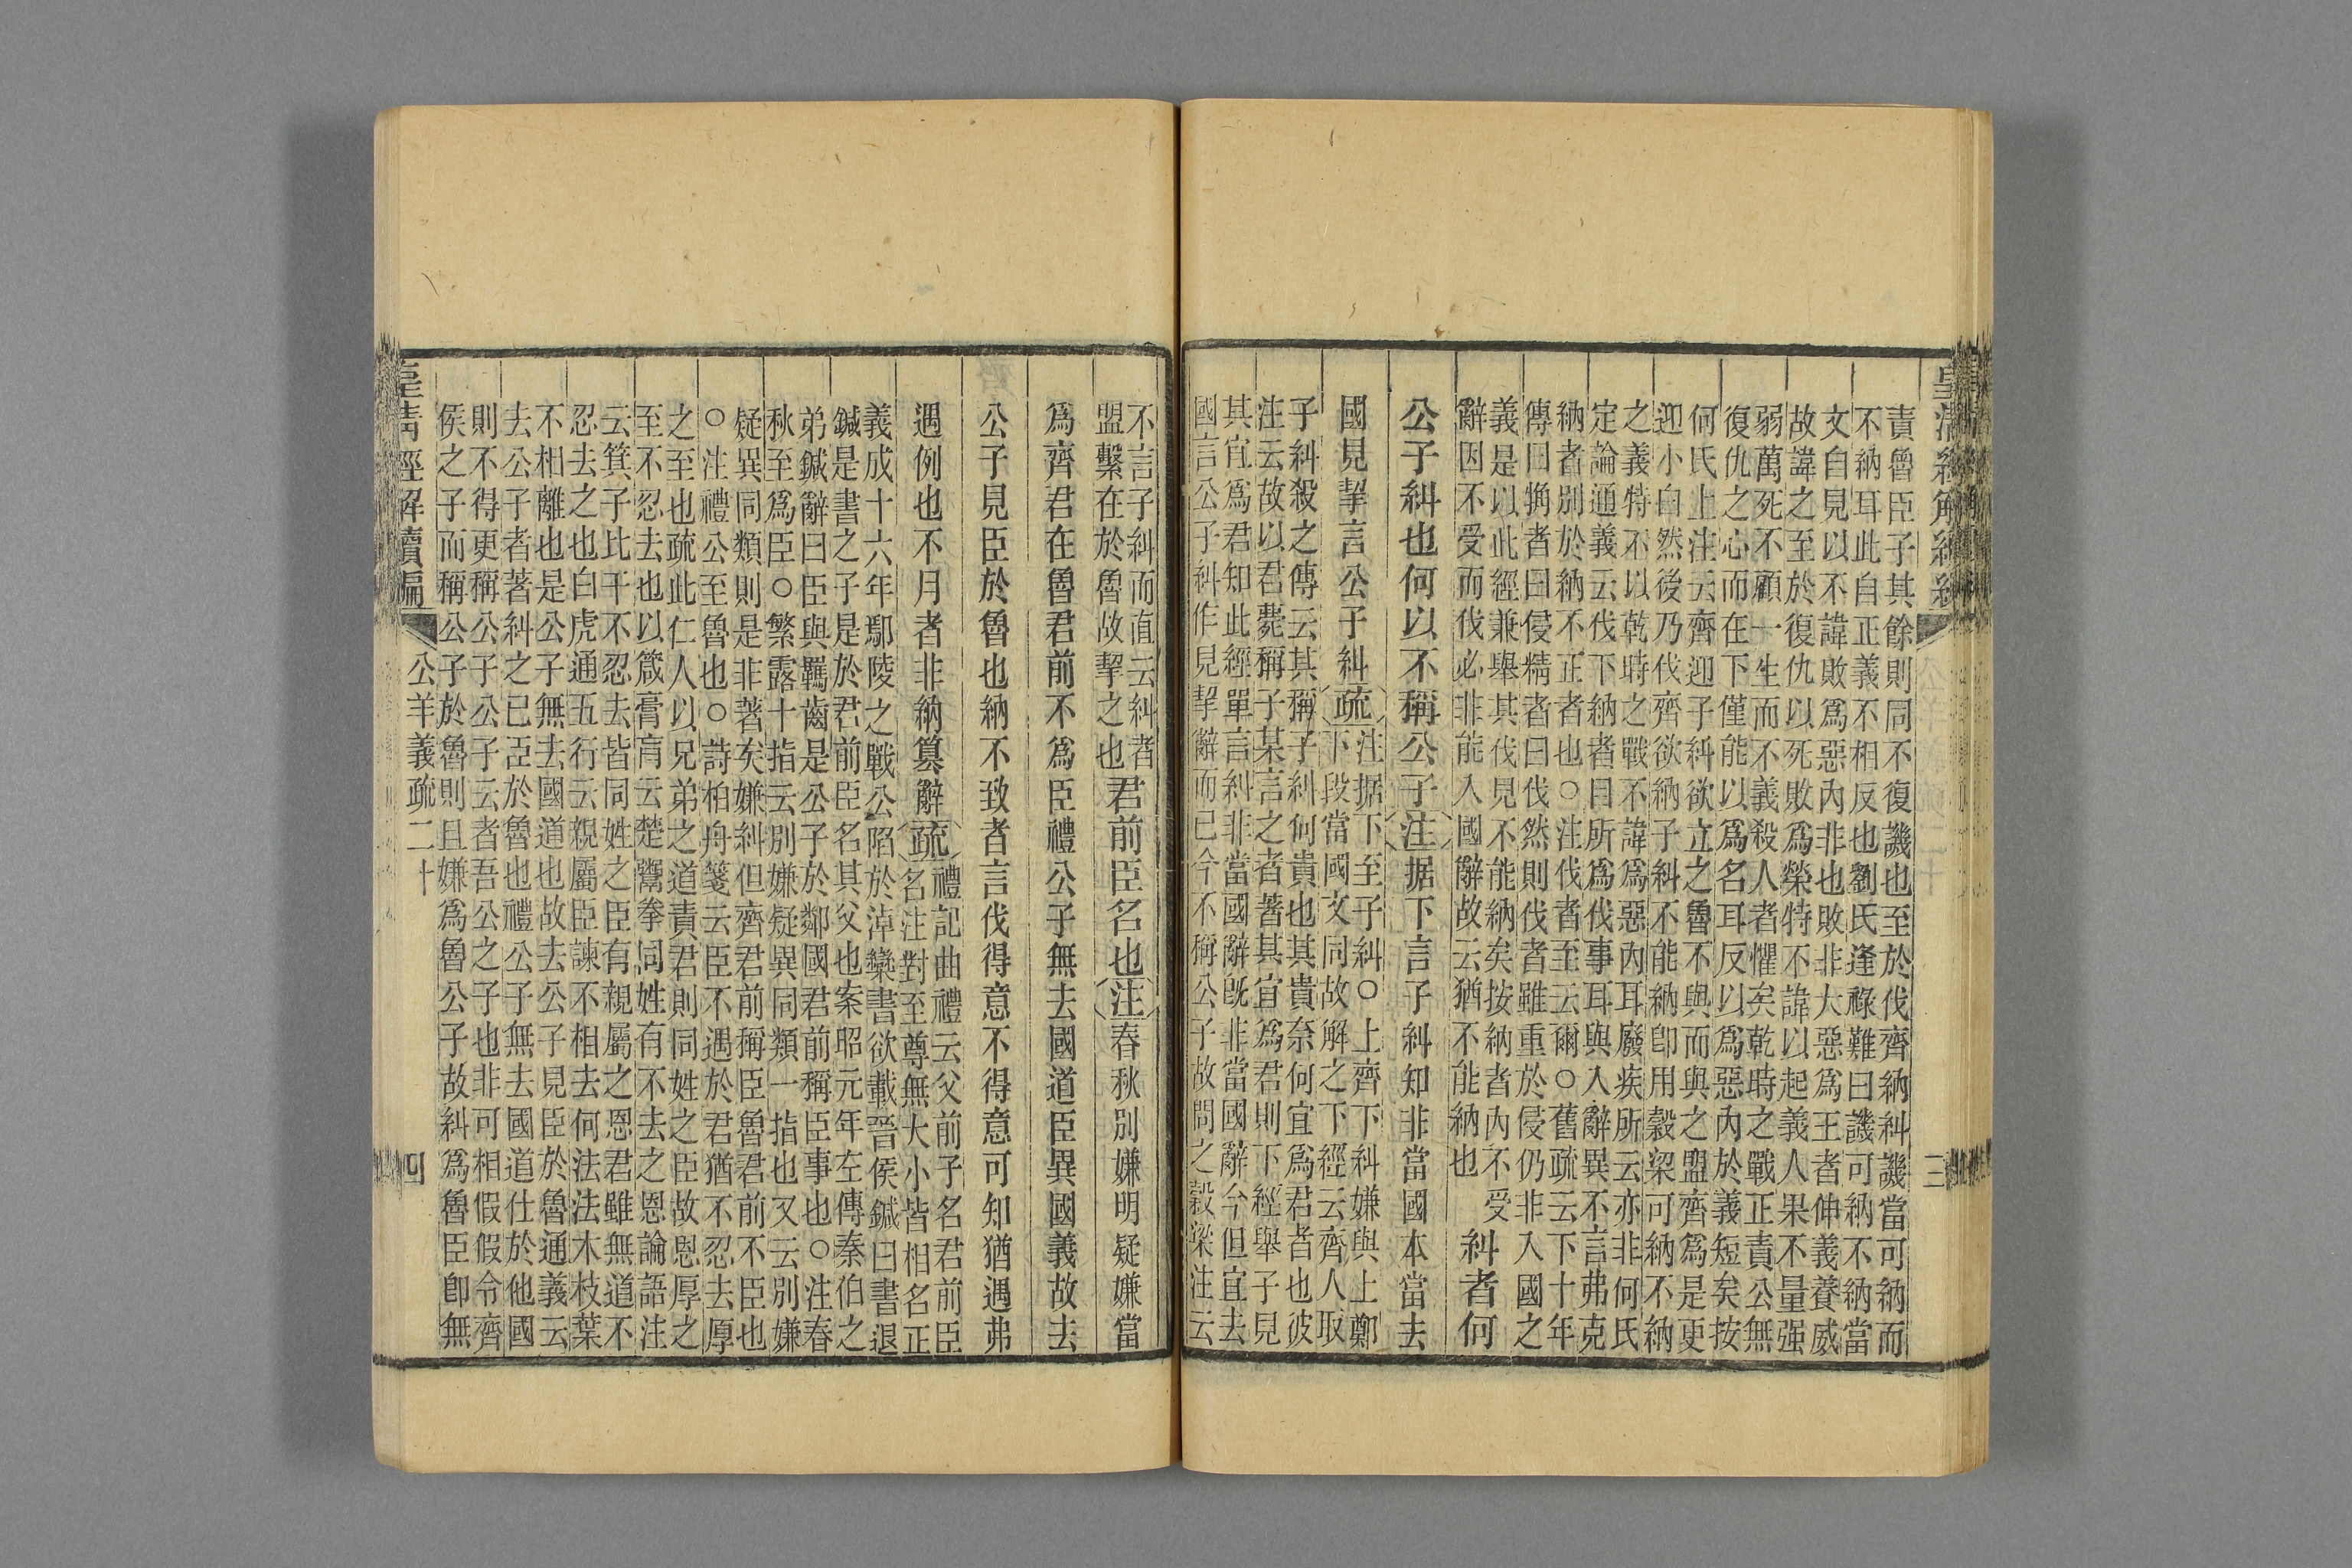 皇清經解續編
三
責魯臣子其餘則同不復譏也至於伐齊納糾譏當可納而
不納耳此自正義不相反也劉氏逢祿難曰譏可納不納當
文自見以不諱敗爲惡內非也敗非大惡爲王者伸義養威
故諱之至於復仇以死敗爲榮特不諱以起義人果不量强
弱萬死不顧一生而不義殺人者懼矣乾時之戰正責公無
復仇之心而在下僅能以爲名耳反以爲惡內於義短矣按
何氏上注云齊迎子糾欲立之魯不與而與之盟齊爲是更
迎小白然後乃伐齊欲納子糾不能納卽用穀梁可納不納
之義特不以乾時之戰不諱爲惡內耳廢疾所云亦非何氏
定論通義云伐下納者曰所爲伐事耳與入辭異不言弗克
納者別於納不正者也○注伐者至云爾○舊疏云下十年
傳曰觕者曰侵精者曰伐然則伐者雖重於侵仍非入國之
義是以此經兼舉其伐見不能納矣按納者內不受
辭因不受而伐必非能入國辭故云猶不能納也
糾者何
公子糾也何以不稱公子注据下言子糾知非當國本當去
國見挈言公子糾疏
注据下至子糾○上齊下糾嫌與上鄭
下段當國文同故解之下經云齊人取
子糾殺之傳云其稱子糾何貴也其貴奈何宜爲君者也彼
注云故以君薨稱子某言之者著其宜爲君則下經舉子見
其宜爲君知此經單言糾非當國辭旣非當國辭今但宜去
國言公子糾作見挈辭而已今不稱公子故問之穀梁注云
不言子糾而直云糾者
盟繫在於魯故挈之也
君前臣名也注春秋別嫌明疑嫌當
爲齊君在魯君前不爲臣禮公子無去國道臣異國義故去
公子見臣於魯也納不致者言伐得意不得意可知猶遇弗
遇例也不月者非納簒辭疏
禮記曲禮云父前子名君前臣
名注對至尊無大小皆相名正
義成十六年鄢陵之戰公陷於淖欒書欲載晉侯鍼曰書退
鍼是書之子是於君前臣名其父也案昭元年左傳秦伯之
弟鍼辭曰臣與羈齒是公子於鄰國君前稱臣事也○注春
秋至爲臣○繁露十指云別嫌疑異同類一指也又云別嫌
疑異同類則是非著矣嫌糾但齊君前稱臣魯君前不臣也
○注禮公至魯也○詩柏舟箋云臣不遇於君猶不忍去厚
之至也疏此仁人以兄弟之道責君則同姓之臣故恩厚之
至不忍去也以箴膏肓云楚鬻拳同姓有不去之恩論語注
云箕子比干不忍去皆同姓之臣有親屬之恩君雖無道不
忍去之也白虎通五行云親屬臣諫不相去何法法木枝葉
不相離也是公子無去國道也故去公子見臣於魯通義云
去公子者著糾之已亞於魯也禮公子無去國道仕於他國
則不得更稱公子公子云者吾公之子也非可相假假令齊
侯之子而稱公子於魯則且嫌爲魯公子故糾爲魯臣卽無
皇清經解續編
公羊義疏二十
四